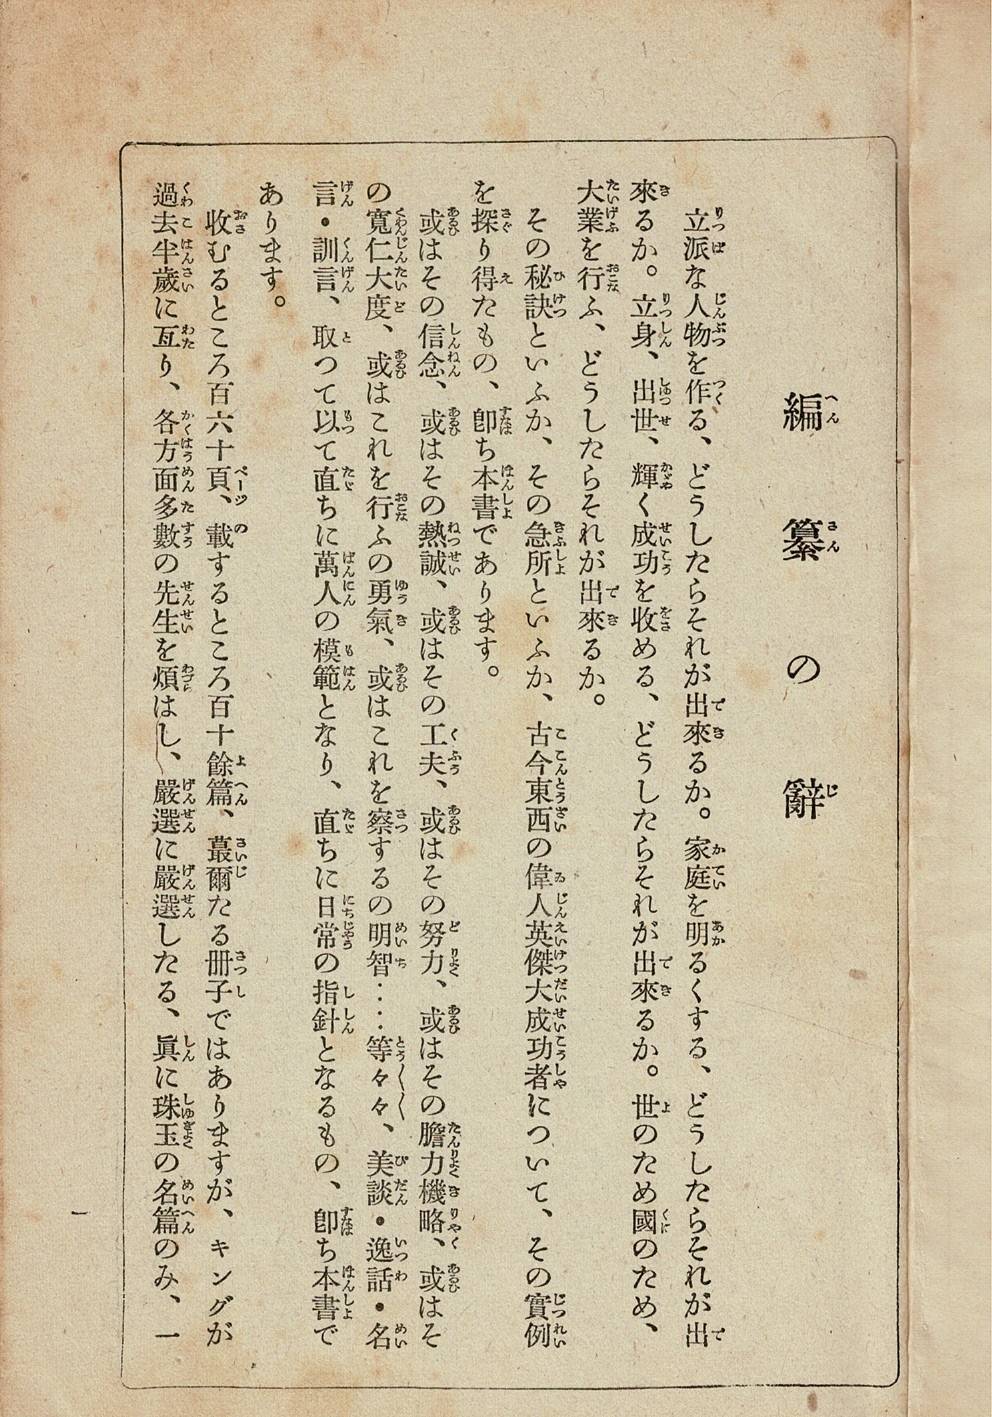 編纂の辭
立派な人物を作る、どうしたらそれが出來るか。家庭を明るくする、どうしたらそれが出
來るか。立身、出世、輝く成功を收める、どうしたらそれが出來るか。世のため國のため、
大業を行ふ、どうしたらそれが出來るか。
その秘訣といふか、その急所といふか、古今東西の偉人英傑大成功者について、その實例
を探り得たもの、卽ち本書であります。
或はその信念、或はその熱誠、或はその工夫、或はその努力、或はその膽力機略、或はそ
の寬仁大度、或はこれを行ふの勇氣、或はこれを察するの明智‥‥等々々、美談・逸話・名
言・訓言、取つて以て直ちに萬人の模範となり、直ちに日常の指針となるもの、卽ち本書で
あります。
收むるところ百六十頁、載するところ百十餘篇、蕞爾たる冊子ではありますが、キングが
過去半歲に亙り、各方面多數の先生を煩はし、嚴選に嚴選したる、眞に珠玉の名篇のみ、一
一